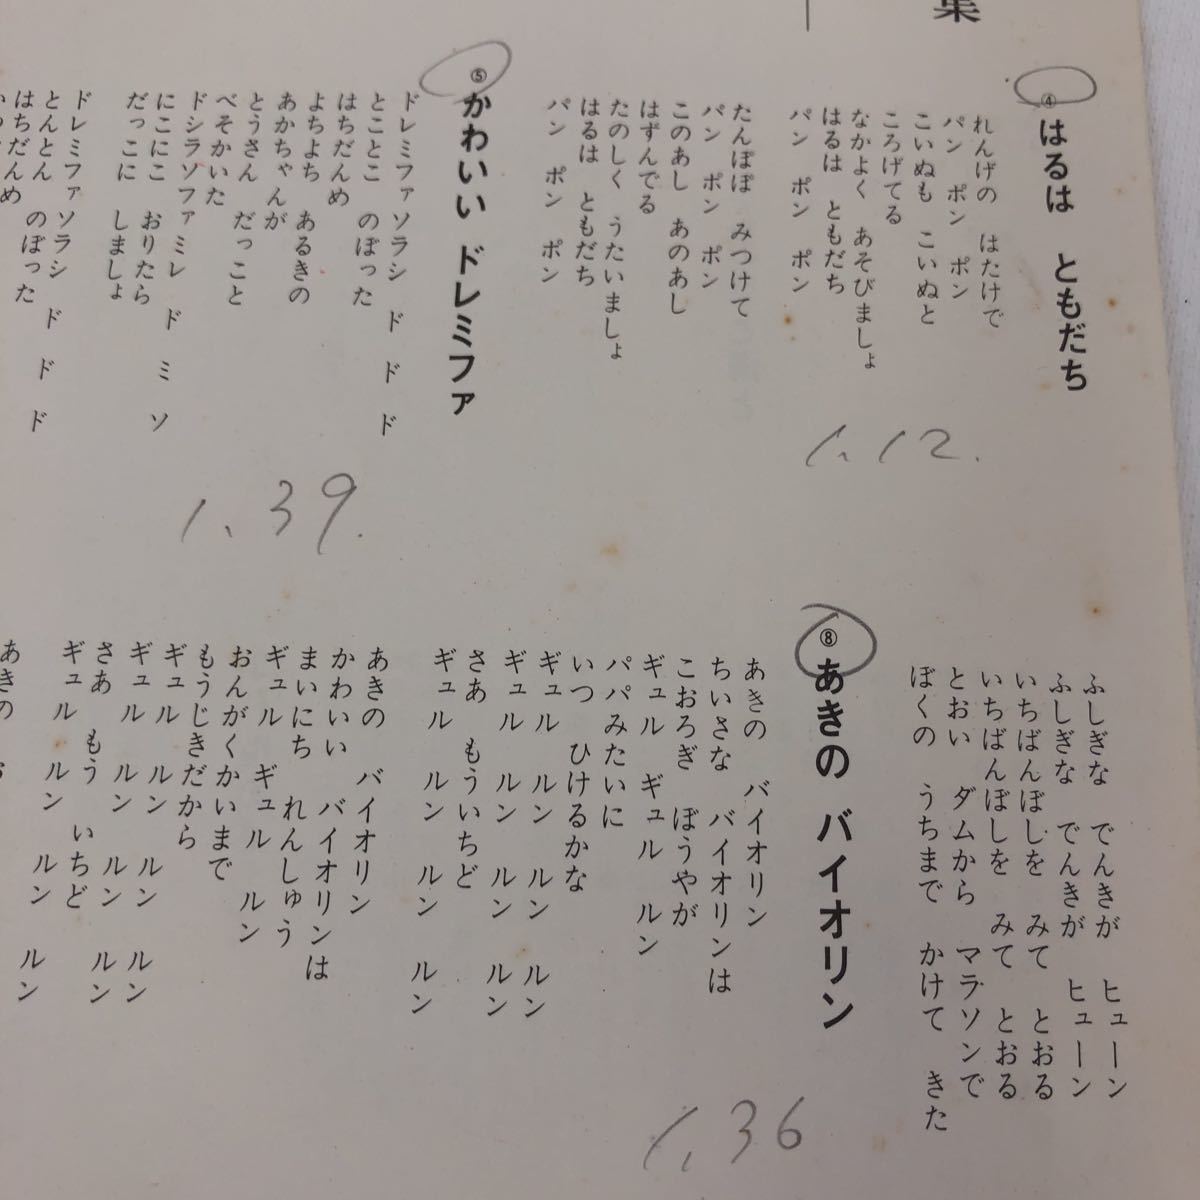 集
④ はるは ともだち
れんげの はたけで
パン ポン ポン
こいぬも こいぬと
ころげてる
なかよく あそびましょ
はるは ともだち
パン ポン ポン
たんぽぽ みつけて
パン ポン ポン
このあし あのあし
はずんでる
たのしく うたいましょ
はるは ともだち
パン ポン ポン
1.12.
⑤ かわいい ドレミファ
ドレミファソラシ ド ド ド
とことこ のぼった
はちだんめ
よちよち あるきの
あかちゃんが
とうさん だっこと
べそかいた
ドシラソファミレ ド ミ ソ
にこにこ おりたら
だっこに しましょ
ドレミファソラシ ド ド ド
とんとん のぼった
はちだんめ
1.39.
ふしぎな でんきが ヒューン
ふしぎな でんきが ヒューン
いちばんぼしを みて とおる
いちばんぼしを みて とおる
とおい ダムから マラソンで
ぼくの うちまで かけて きた
⑧ あきの バイオリン
あきの バイオリン
ちいさな バイオリンは
こおろぎ ぼうやが
ギュル ギュル ルン
パパみたいに
いつ ひけるかな
ギュル ルン ルン ルン
ギュル ルン ルン ルン
さあ もういちど
ギュル ルン ルン ルン
あきの バイオリン
かわいい バイオリンは
まいにち れんしゅう
ギュル ギュル ルン
おんがくかいまで
もうじきだから
ギュル ルン ルン ルン
ギュル ルン ルン ルン
さあ もう いちど
ギュル ルン ルン ルン
あきの
1.36